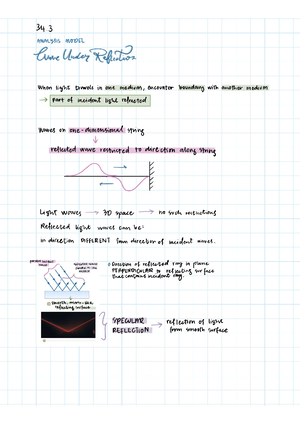 34.3
ANALYSIS MODEL
Wave Under Reflection
When light travels in one medium, encounter boundary with another medium
→ part of incident light reflected
Waves on one-dimensional string
↓
reflected wave restricted to direction along string
Light waves → 3D space → no such restrictions
Reflected light waves can be:
in direction DIFFERENT from direction of incident waves.
Direction of reflected ray in plane
PERPENDICULAR to reflecting surface
that contains incident ray.
reflecting surface
SPECULAR REFLECTION → reflection of light
from smooth surface